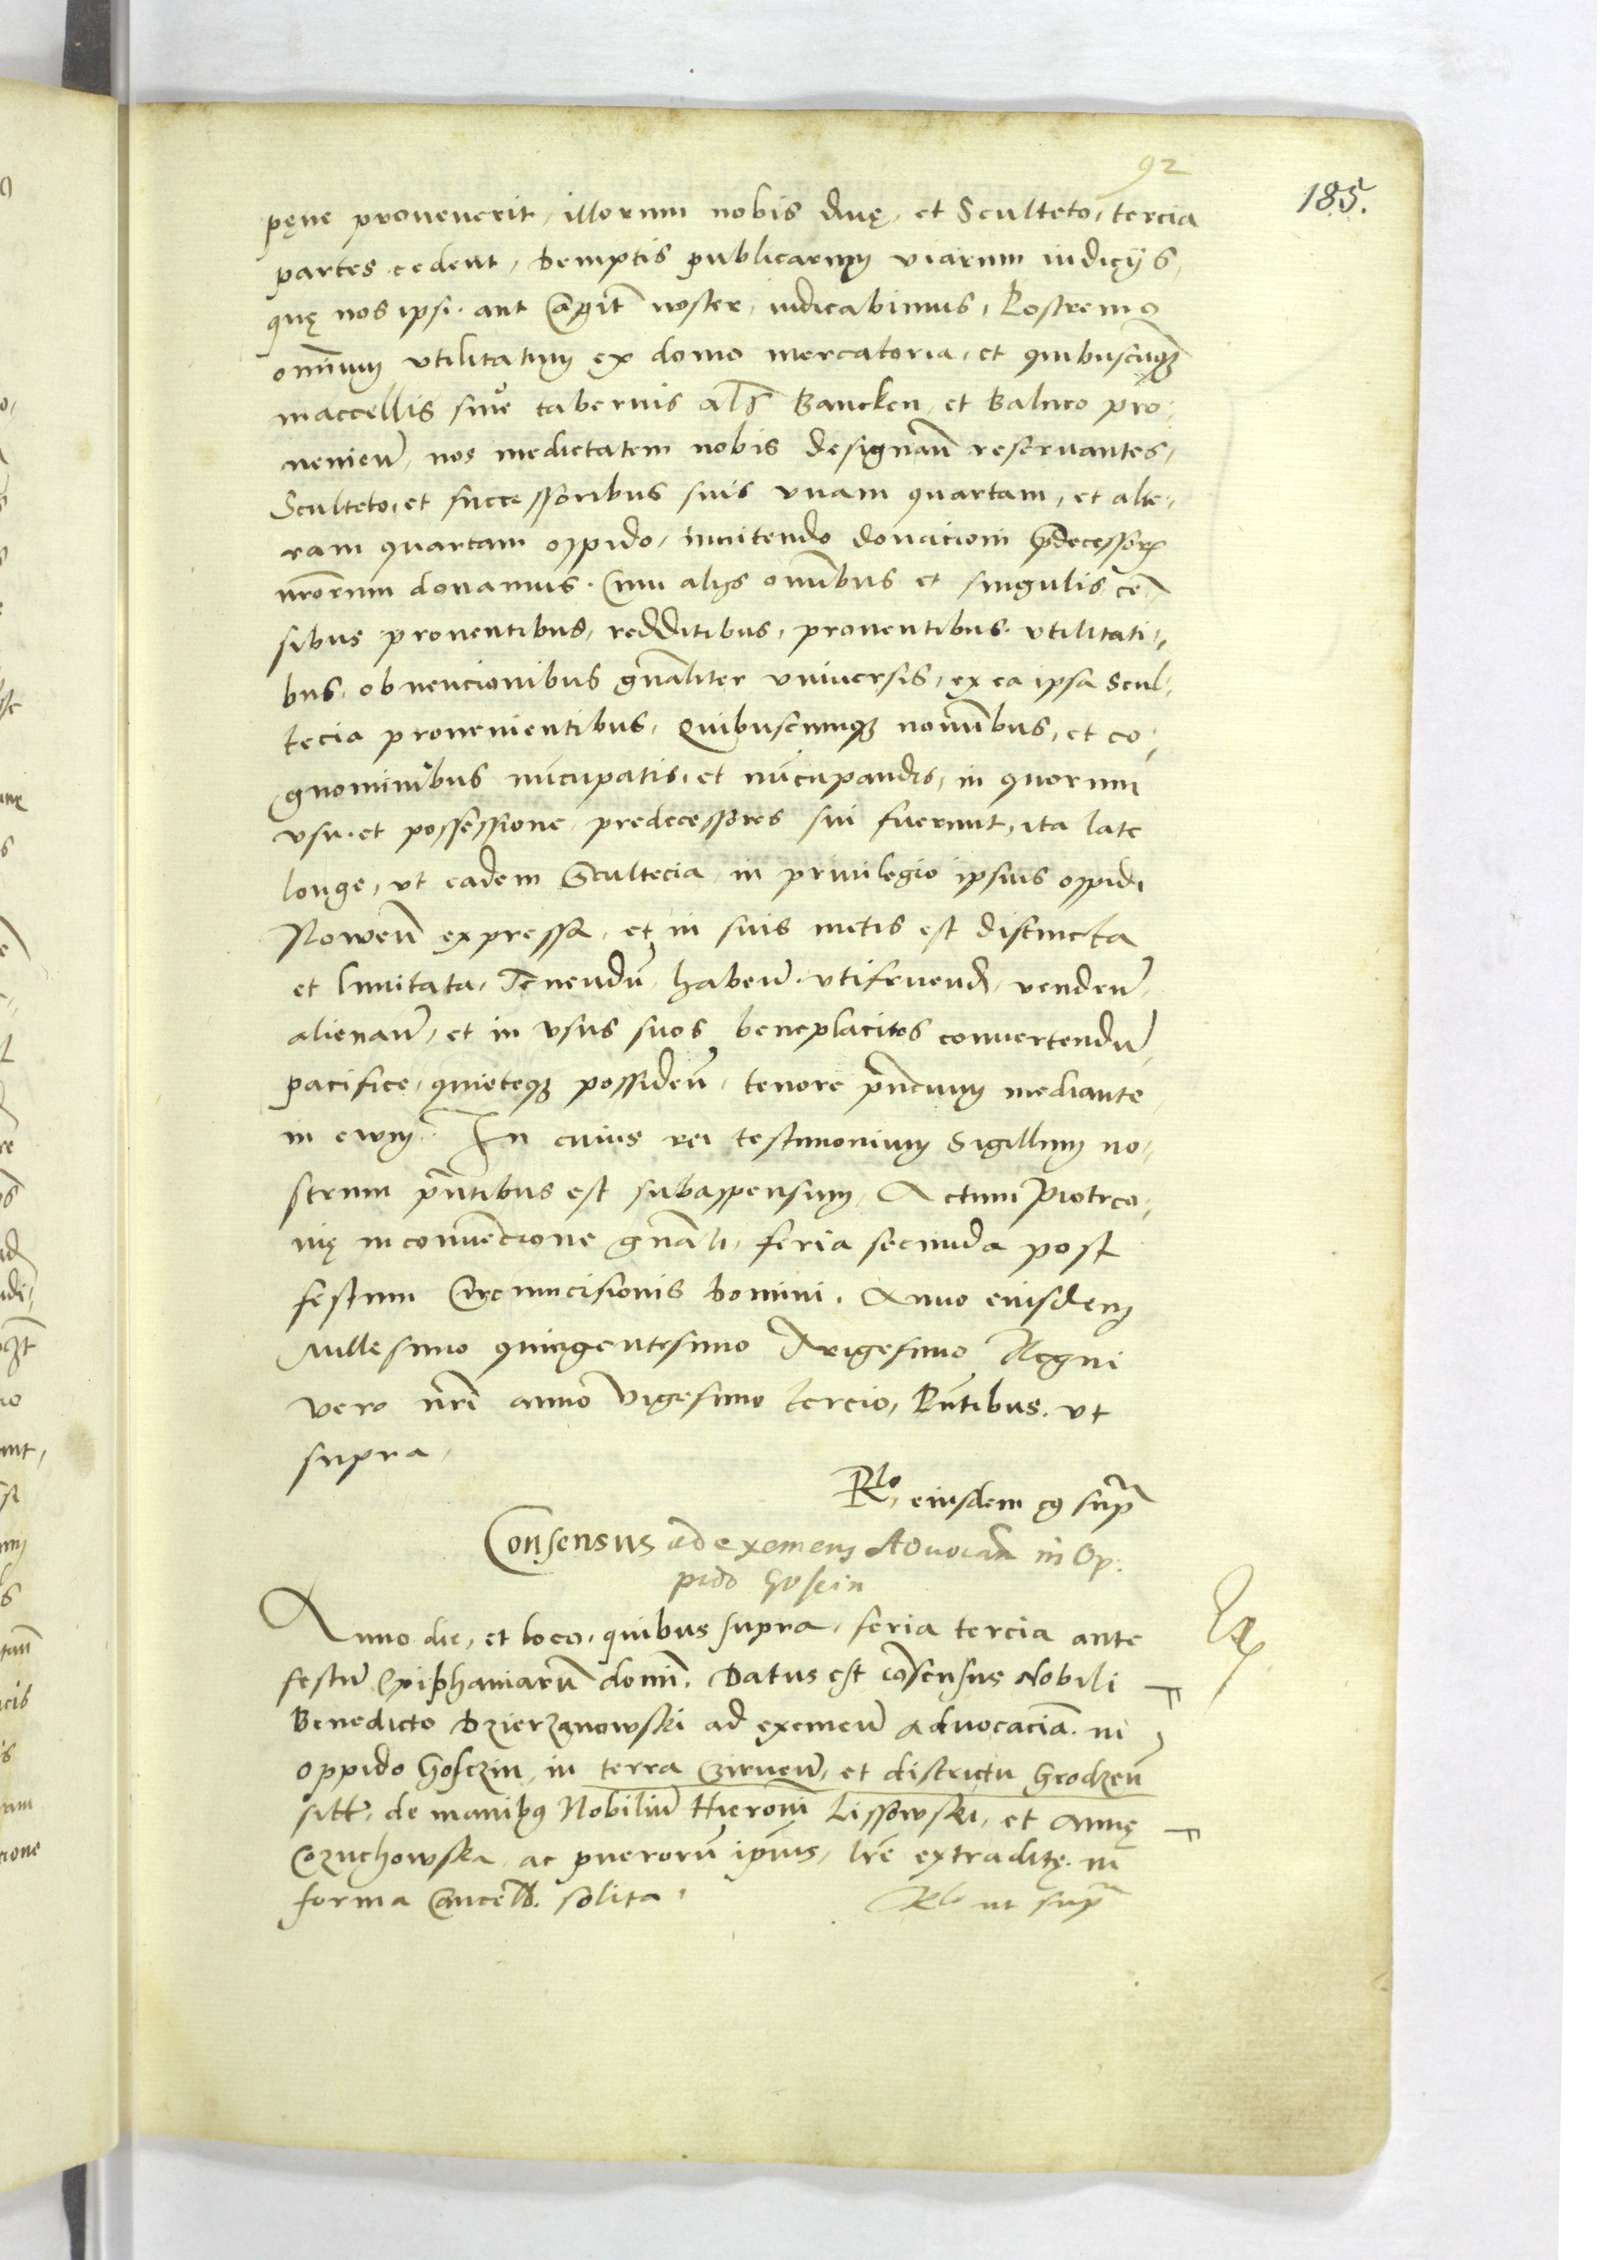 92
185.
pęne provenerit, illorum nobis duę, et Sculteto, tercia
partes cedent, demptis publicarum viarum iudicijs,
quę nos ipsi aut Capit noster, iudicabimus, Postremo
omnium vtilitatum ex domo mercatoria, et quibuscumq
maccellis siue tabernis als Bancken, et Balneo pro-
venien, nos medietatem nobis designan reseruantes,
Sculteto, et successoribus suis vnam quartam, et alte-
ram quartam oppido, innitendo donacioni predecessorum
nrorum donamus. Cum alijs omibus et singulis cen-
sibus proventibus, redditibus, proventibus vtilitati-
bus, obvencionibus gnaliter vniversis, ex ea ipsa Scul-
tecia provenientibus, Quibuscumq nominibus, et co-
gnominibus nuncupatis, et nuncupandis, in quorum
vsu et possessione predecessores sui fuerunt, ita late
longe, vt eadem Scultecia in privilegio ipsius oppidi
Nowen expressa, et in suis metis est distincta
et limitata, Tenendum, haben vtifruend, venden,
alienan, et in vsus suos beneplacitos convertendum,
pacifice, quieteq possiden, tenore pncium mediante
in ewm. In cuius rei testimonium Sigillum no-
strum pntibus est subappensum, Actum Piotrco-
vię in convencione gnali, feria secunda post
festum Circumcisionis domini, Anno eiusdem
Millesimo quingentesimo Trigesimo Regni
vero nri anno vigesimo tercio, Pntibus vt
supra,
Rlo, eiusdem q supra
Consensus ad exemen Aduocam in Op-
pido Gosczin
Anno die, et loco, quibus supra, feria tercia ante
festum Epiphaniarum domi, Datus est consensus Nobili
Benedicto Dzierzanowski ad exemen aduocaciam in
oppido Gosczin, in terra Czirnen, et districtu Grodzen
sitt, de manibus Nobilium Hieroni Lissowski, et Annę
Cozuchowska, ac puerorum ipsius, lre extraditę in
forma Cancell. solita.
Rlo ut supra